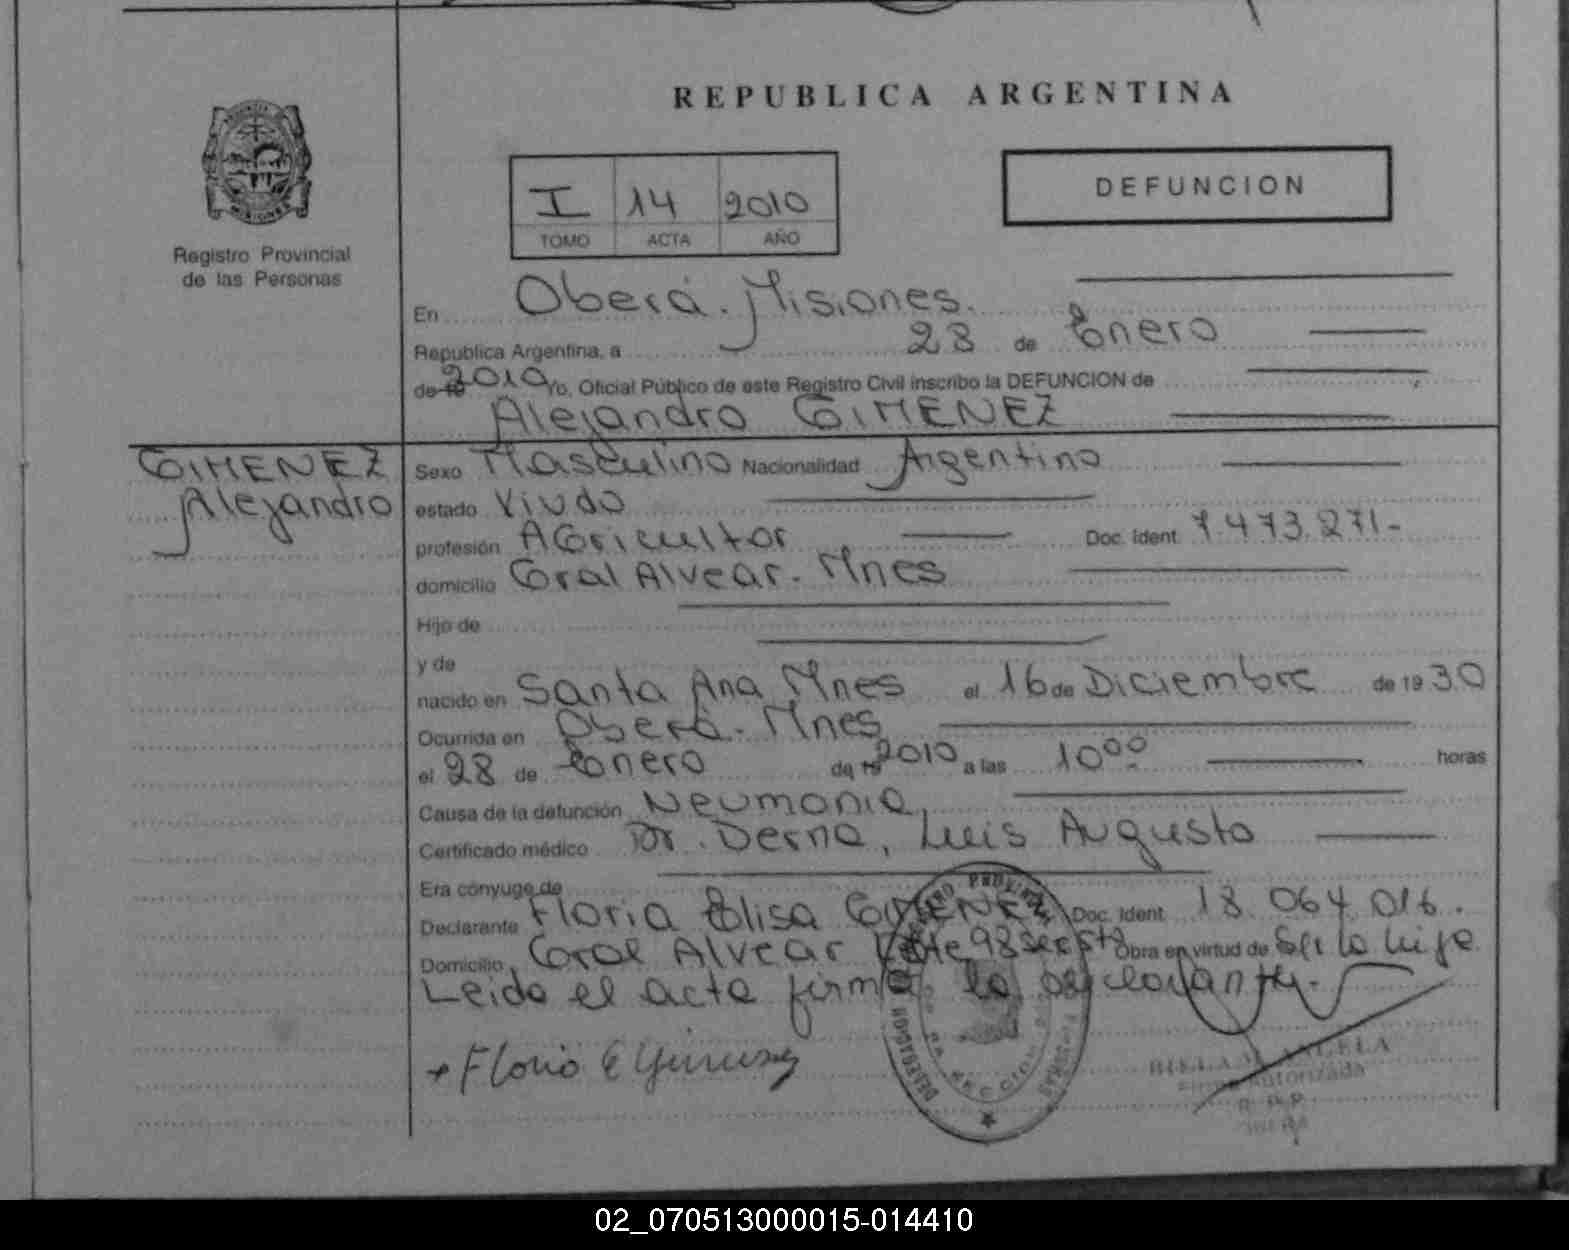 REPUBLICA ARGENTINA
MISIONES
Registro Provincial
de las Personas
I 14 2010
TOMO ACTA AÑO
DEFUNCION
En Oberá. Misiones.
Republica Argentina, a 28 de Enero
de 19 2010 Yo, Oficial Público de este Registro Civil inscribo la DEFUNCION de
Alejandro GIMENEZ
GIMENEZ
Alejandro
Sexo Masculino Nacionalidad Argentino
estado Viudo
profesión AGricultor Doc. Ident. 7.473.271-
domicilio Gral Alvear. Mnes
Hijo de
y de
nacido en Santa Ana Mnes el 16 de Diciembre de 19 30
Ocurrida en Oberá. Mnes
el 28 de Enero de 19 2010 a las 10⁰⁰ horas
Causa de la defunción Neumonia,
Certificado médico Dr. Derna, Luis Augusto
Era cónyuge de
Declarante Floria Elisa GIMENEZ Doc. Ident. 18.064.016.
Domicilio Gral Alvear Lote 98 Obra en virtud de Ser la hija
Leida el acta firma la declarante.
Floria E Gimenez
Firma Autorizada
R. P. P.
OBERA
02_070513000015-014410